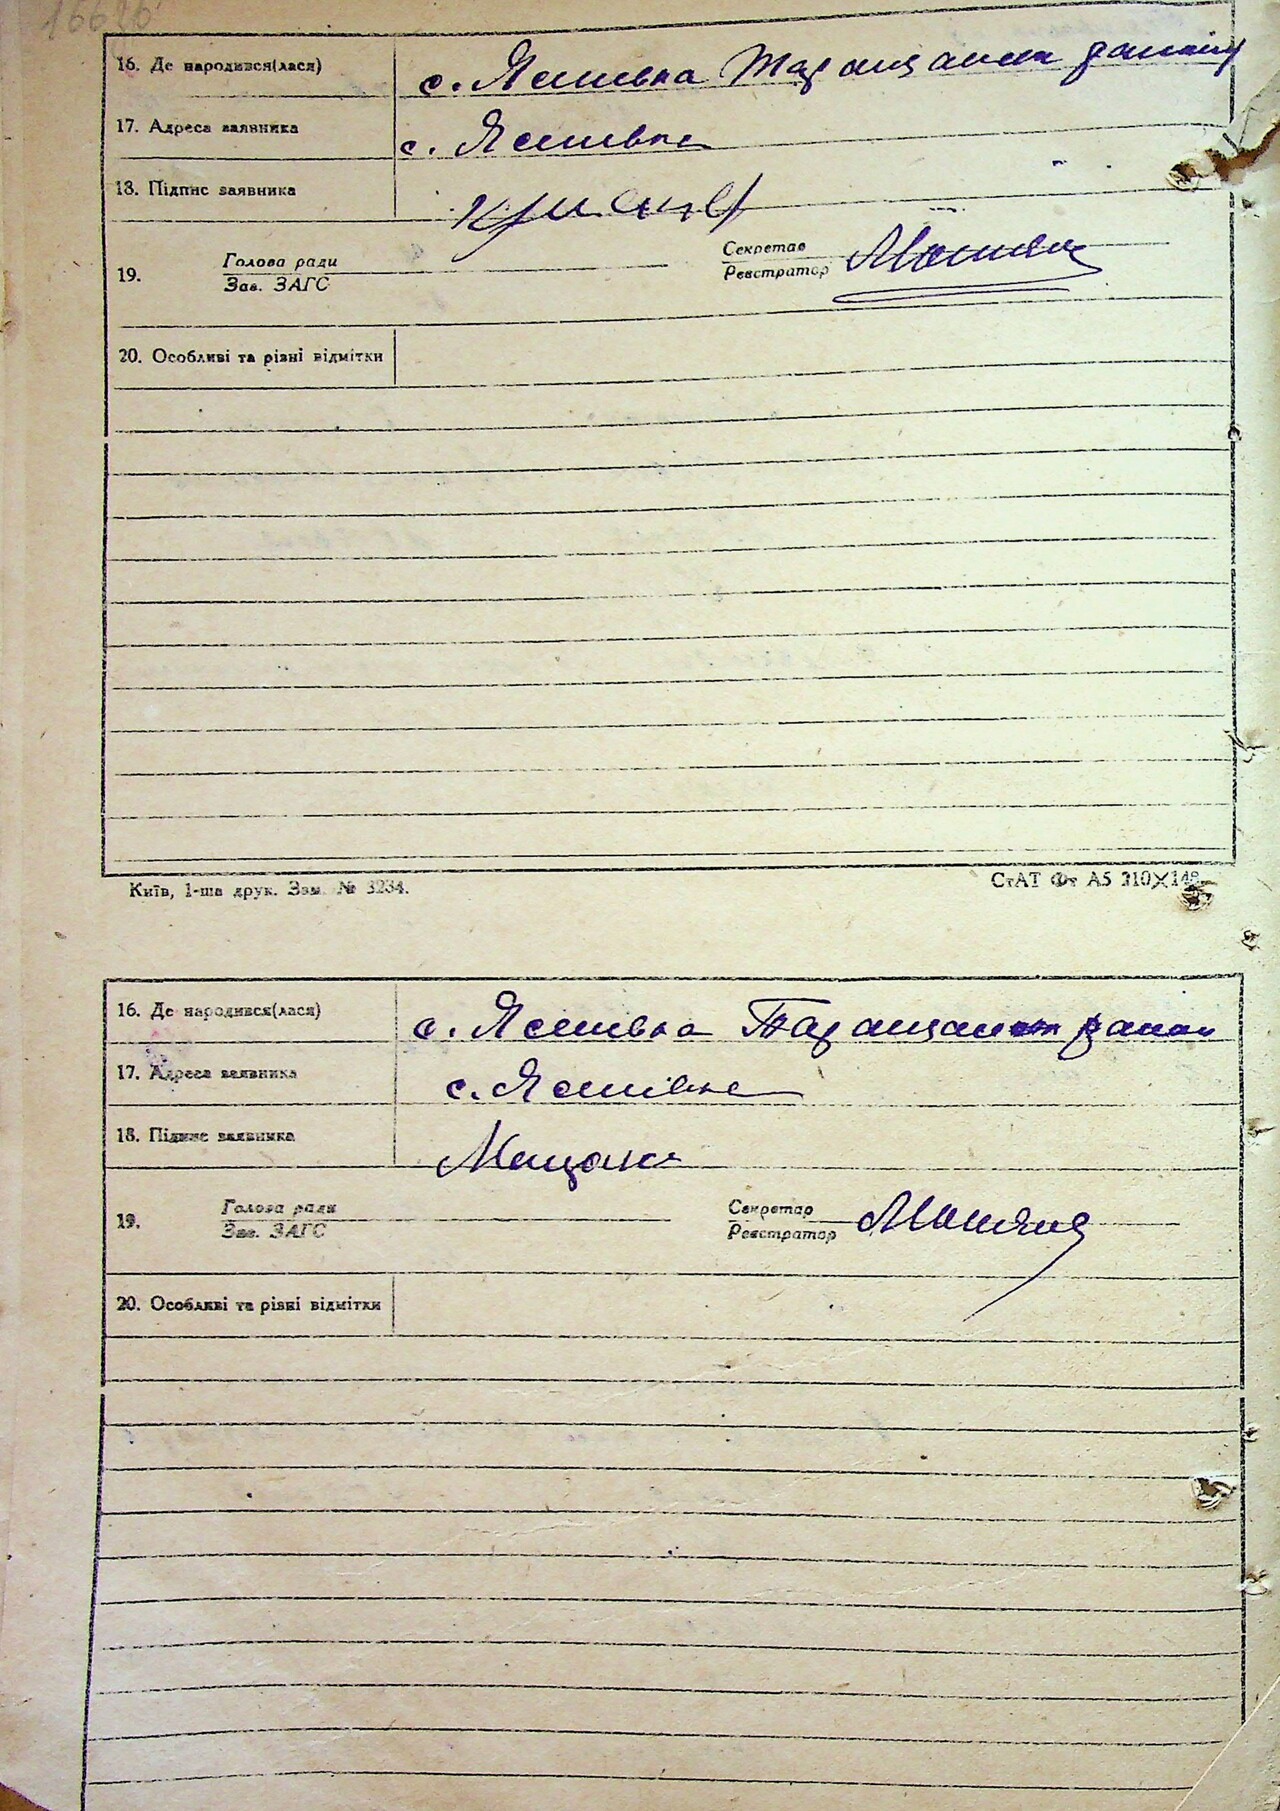 16626
16. Де народився(лася) с. Яснівка Таращанськ району
17. Адреса заявника с. Яснівка
18. Підпис заявника
19. Голова ради Секретар
Зав. ЗАГС Реєстратор
20. Особливі та різні відмітки
Київ, 1-ша друк. Зам. № 3234. СтАТ Фт А5 210×148
16. Де народився(лася) с. Яснівка Таращанськ району
17. Адреса заявника с. Яснівка
18. Підпис заявника
19. Голова ради Секретар
Зав. ЗАГС Реєстратор
20. Особливі та різні відмітки